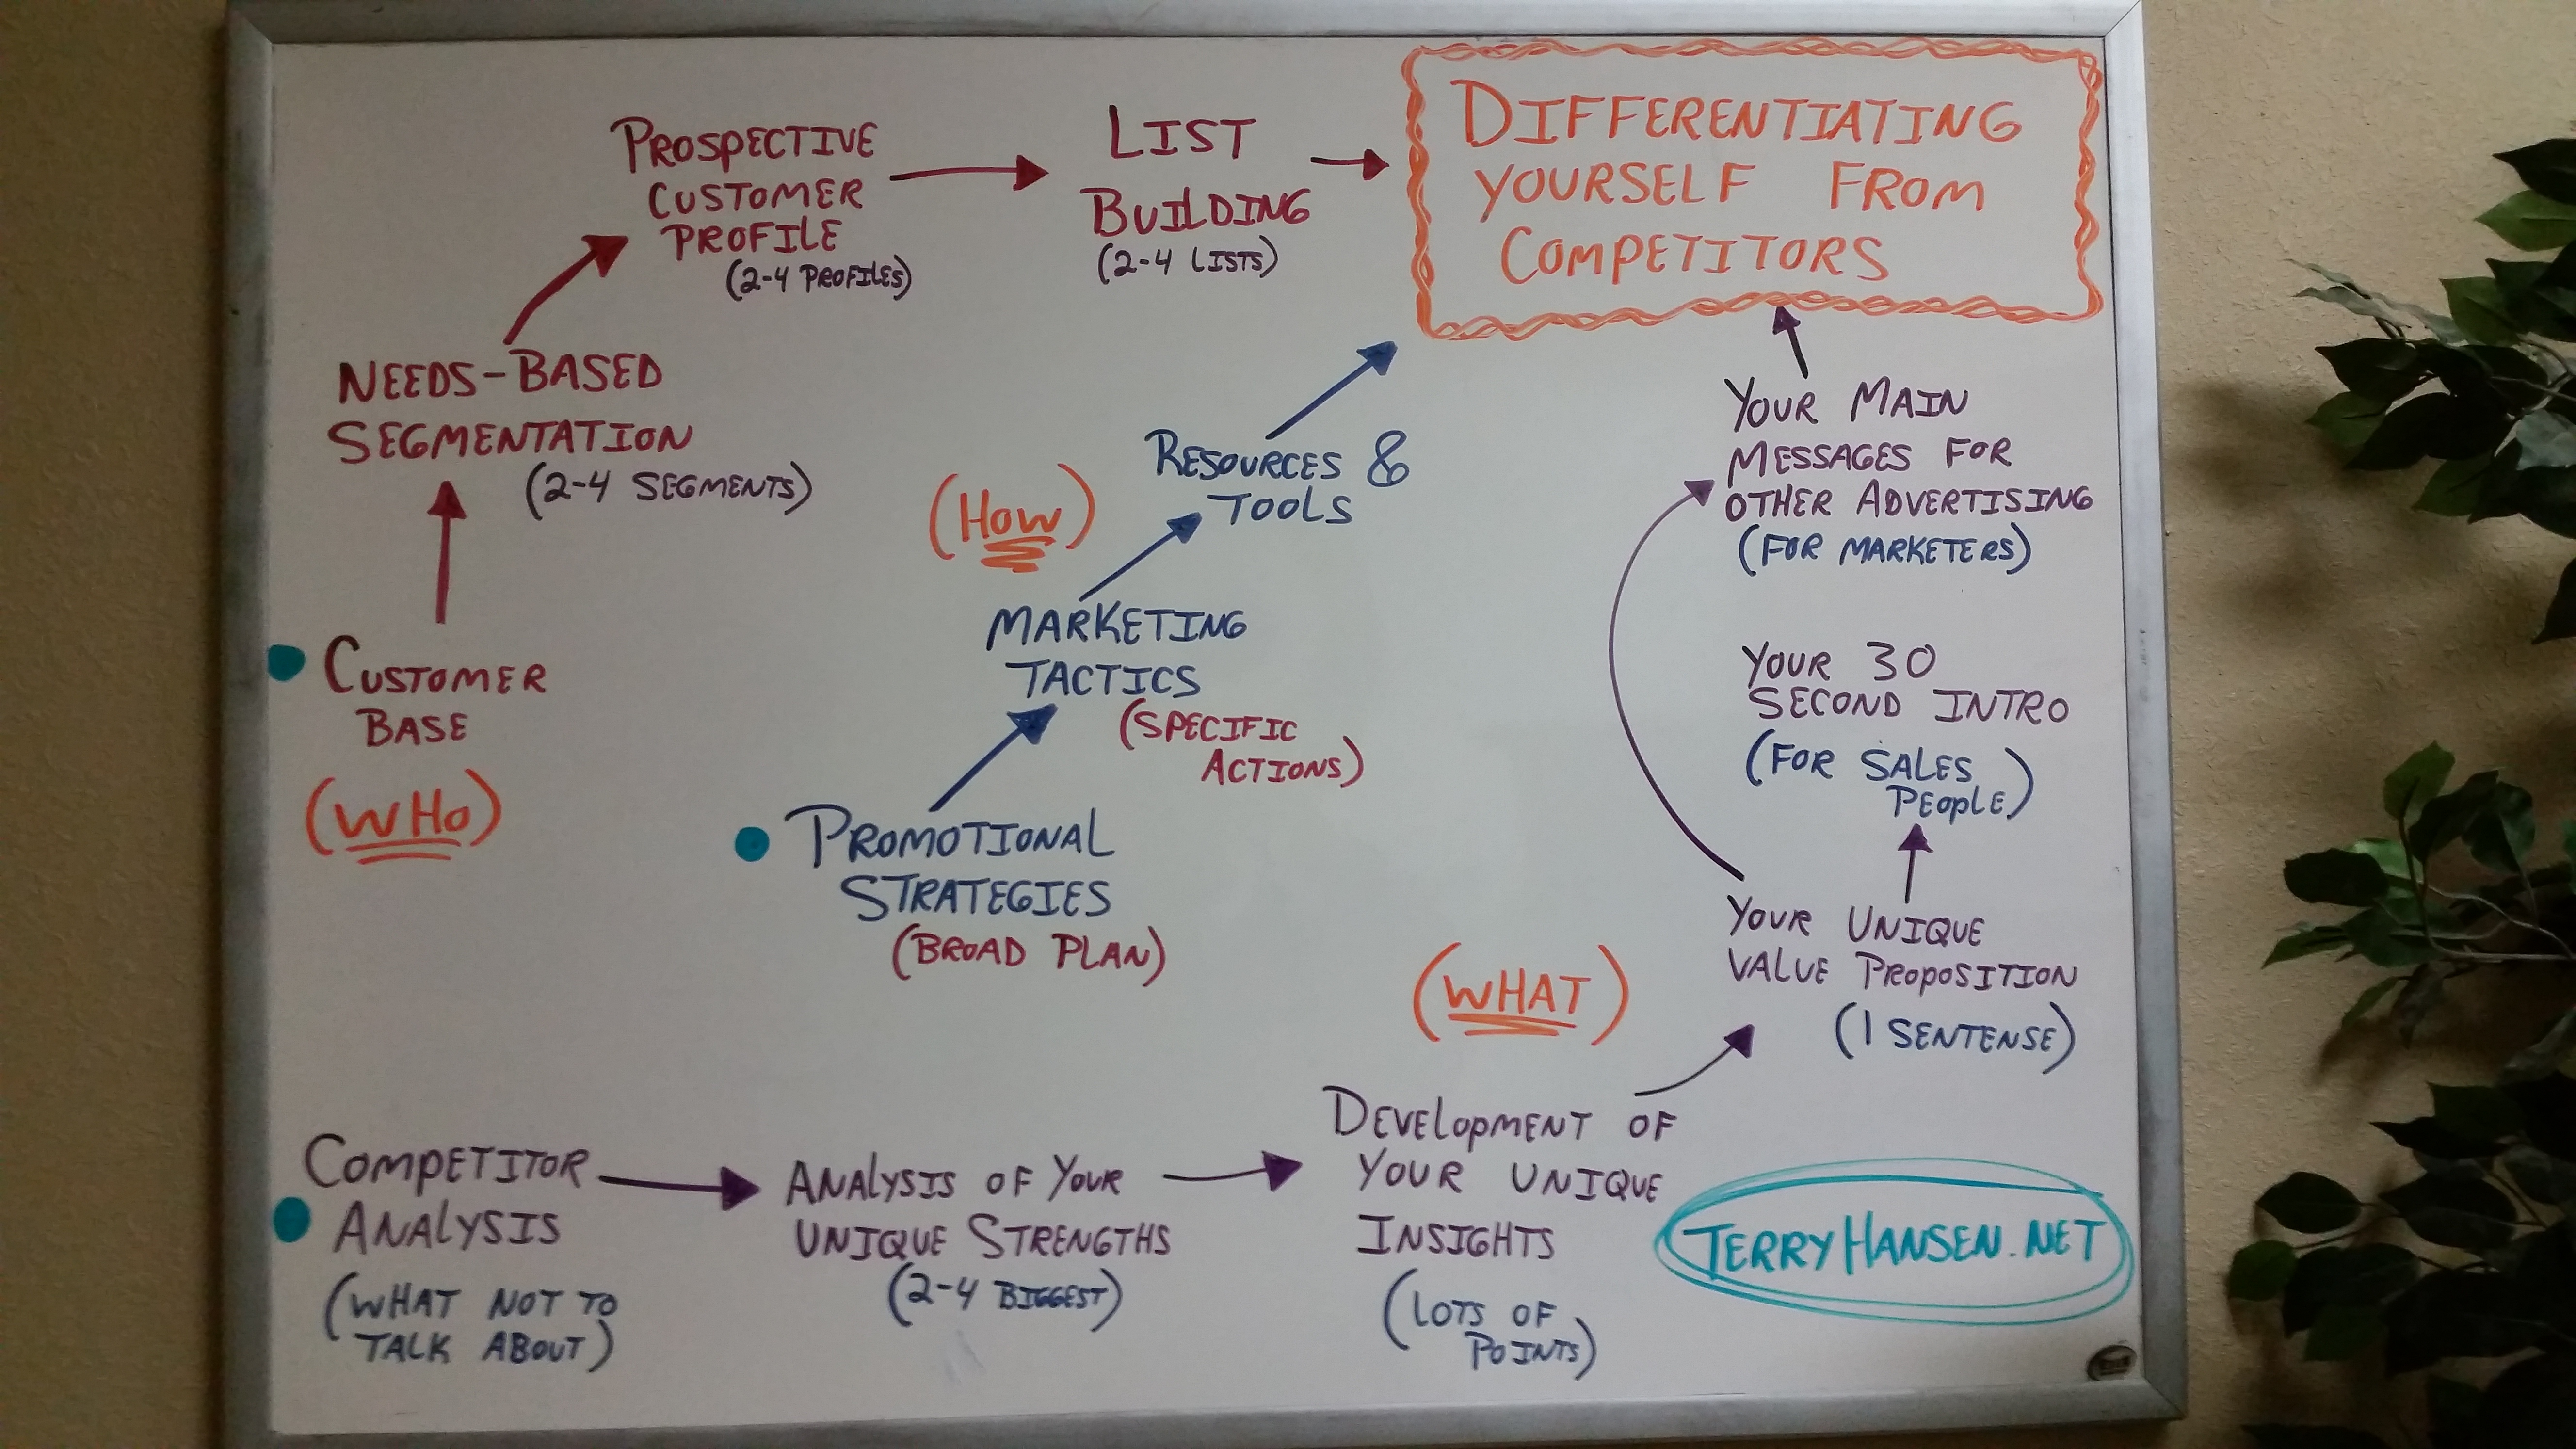 DIFFERENTIATING
YOURSELF FROM
COMPETITORS
CUSTOMER
BASE
(WHO)
NEEDS-BASED
SEGMENTATION
(2-4 SEGMENTS)
PROSPECTIVE
CUSTOMER
PROFILE
(2-4 PROFILES)
LIST
BUILDING
(2-4 LISTS)
PROMOTIONAL
STRATEGIES
(BROAD PLAN)
MARKETING
TACTICS
(SPECIFIC
ACTIONS)
(HOW)
RESOURCES &
TOOLS
COMPETITOR
ANALYSIS
(WHAT NOT TO
TALK ABOUT)
ANALYSIS OF YOUR
UNIQUE STRENGTHS
(2-4 BIGGEST)
DEVELOPMENT OF
YOUR UNIQUE
INSIGHTS
(LOTS OF
POINTS)
(WHAT)
YOUR UNIQUE
VALUE PROPOSITION
(1 SENTENSE)
YOUR 30
SECOND INTRO
(FOR SALES
PEOPLE)
YOUR MAIN
MESSAGES FOR
OTHER ADVERTISING
(FOR MARKETERS)
TERRYHANSEN.NET